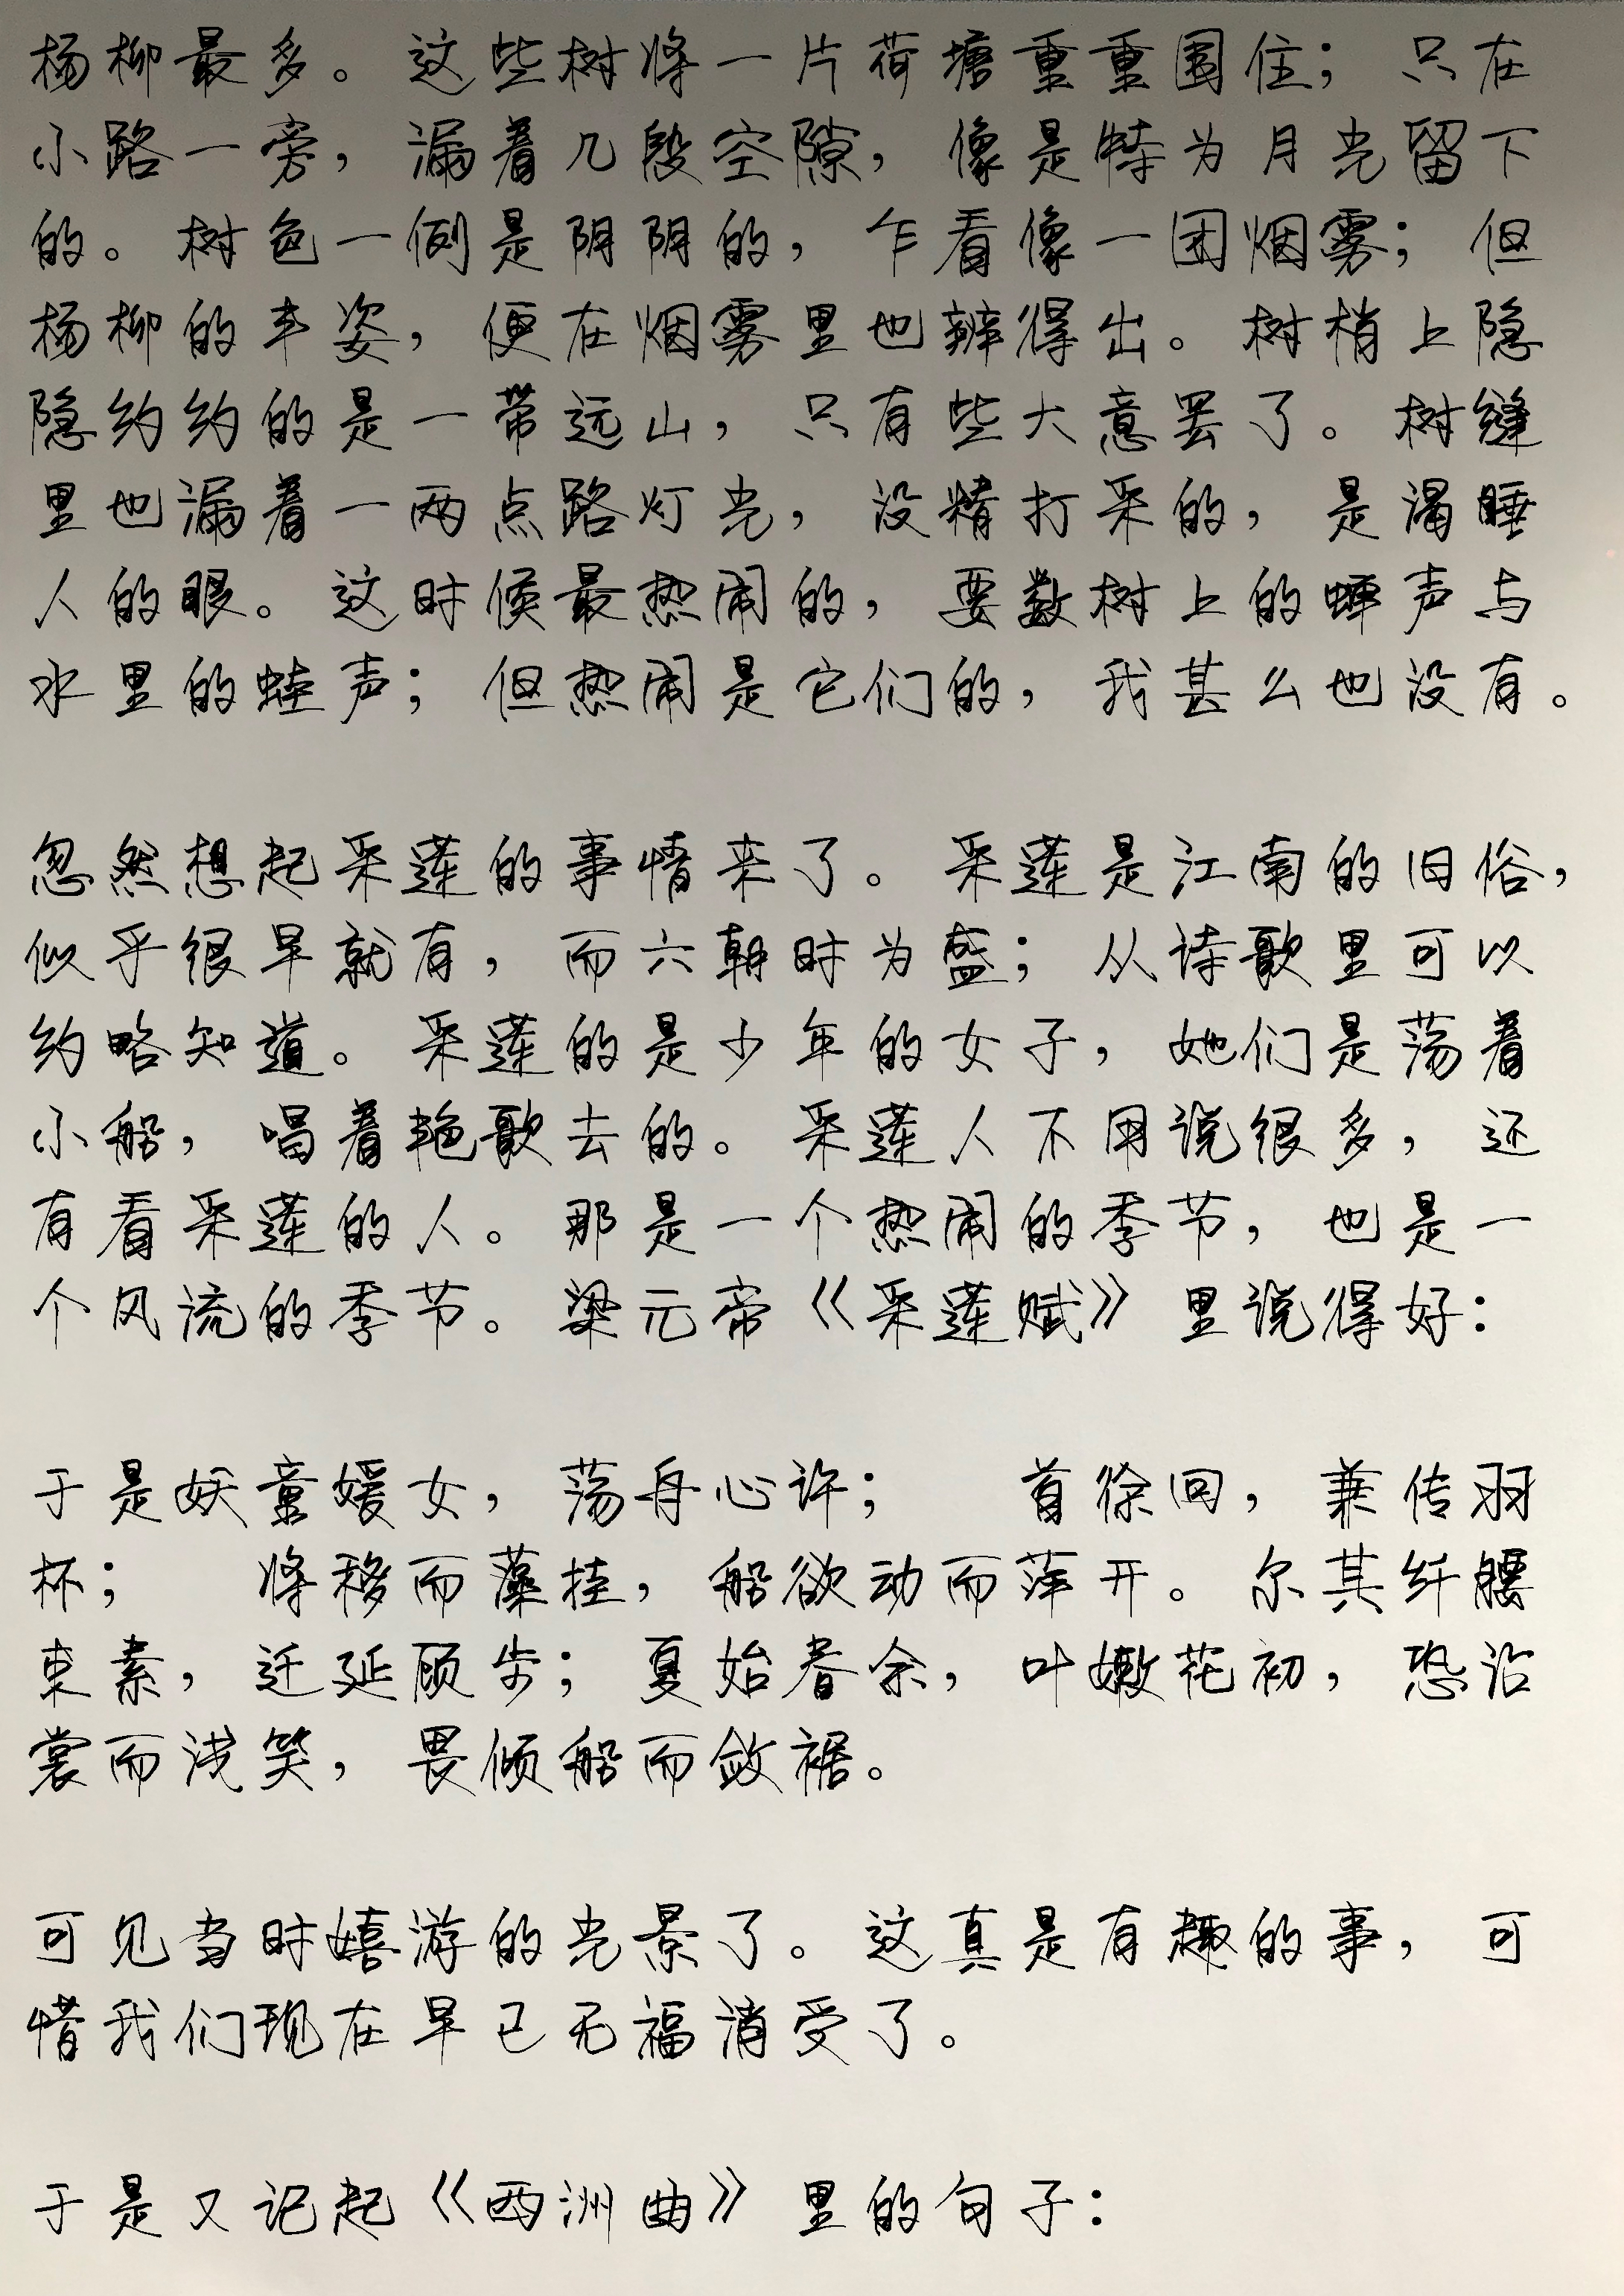 杨柳最多。这些树将一片荷塘重重围住；只在
小路一旁，漏着几段空隙，像是特为月光留下
的。树色一例是阴阴的，乍看像一团烟雾；但
杨柳的丰姿，便在烟雾里也辨得出。树梢上隐
隐约约的是一带远山，只有些大意罢了。树缝
里也漏着一两点路灯光，没精打采的，是渴睡
人的眼。这时候最热闹的，要数树上的蝉声与
水里的蛙声；但热闹是它们的，我甚么也没有。
忽然想起采莲的事情来了。采莲是江南的旧俗，
似乎很早就有，而六朝时为盛；从诗歌里可以
约略知道。采莲的是少年的女子，她们是荡着
小船，唱着艳歌去的。采莲人不用说很多，还
有看采莲的人。那是一个热闹的季节，也是一
个风流的季节。梁元帝《采莲赋》里说得好：
于是妖童媛女，荡舟心许； 首徐回，兼传羽
杯； 将移而藻挂，船欲动而萍开。尔其纤腰
束素，迁延顾步；夏始春余，叶嫩花初，恐沾
裳而浅笑，畏倾船而敛裾。
可见当时嬉游的光景了。这真是有趣的事，可
惜我们现在早已无福消受了。
于是又记起《西洲曲》里的句子：